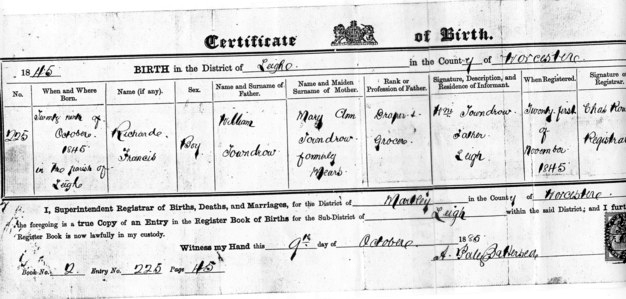 Certificate of Birth.
1845 BIRTH in the District of Leigh in the County of Worcester
No. When and Where Born. Name (if any). Sex. Name and Surname of Father. Name and Maiden Surname of Mother. Rank or Profession of Father. Signature, Description, and Residence of Informant. When Registered. Signature of Registrar
225 October 1845 in the parish of Leigh Richard Francis Boy William Towndrow Mary Ann Towndrow formerly Mears Draper & Grocer Wm Towndrow Father Leigh Twenty first of November 1845 Chas Registrar
I, Superintendent Registrar of Births, Deaths, and Marriages, for the District of Martley in the County of Worcester
the foregoing is a true Copy of an Entry in the Register Book of Births for the Sub-District of Leigh within the said District; and I furt
Register Book is now lawfully in my custody.
Witness my Hand this 9th day of October 18
Book No. 2. Entry No. 225 Page 45 A.